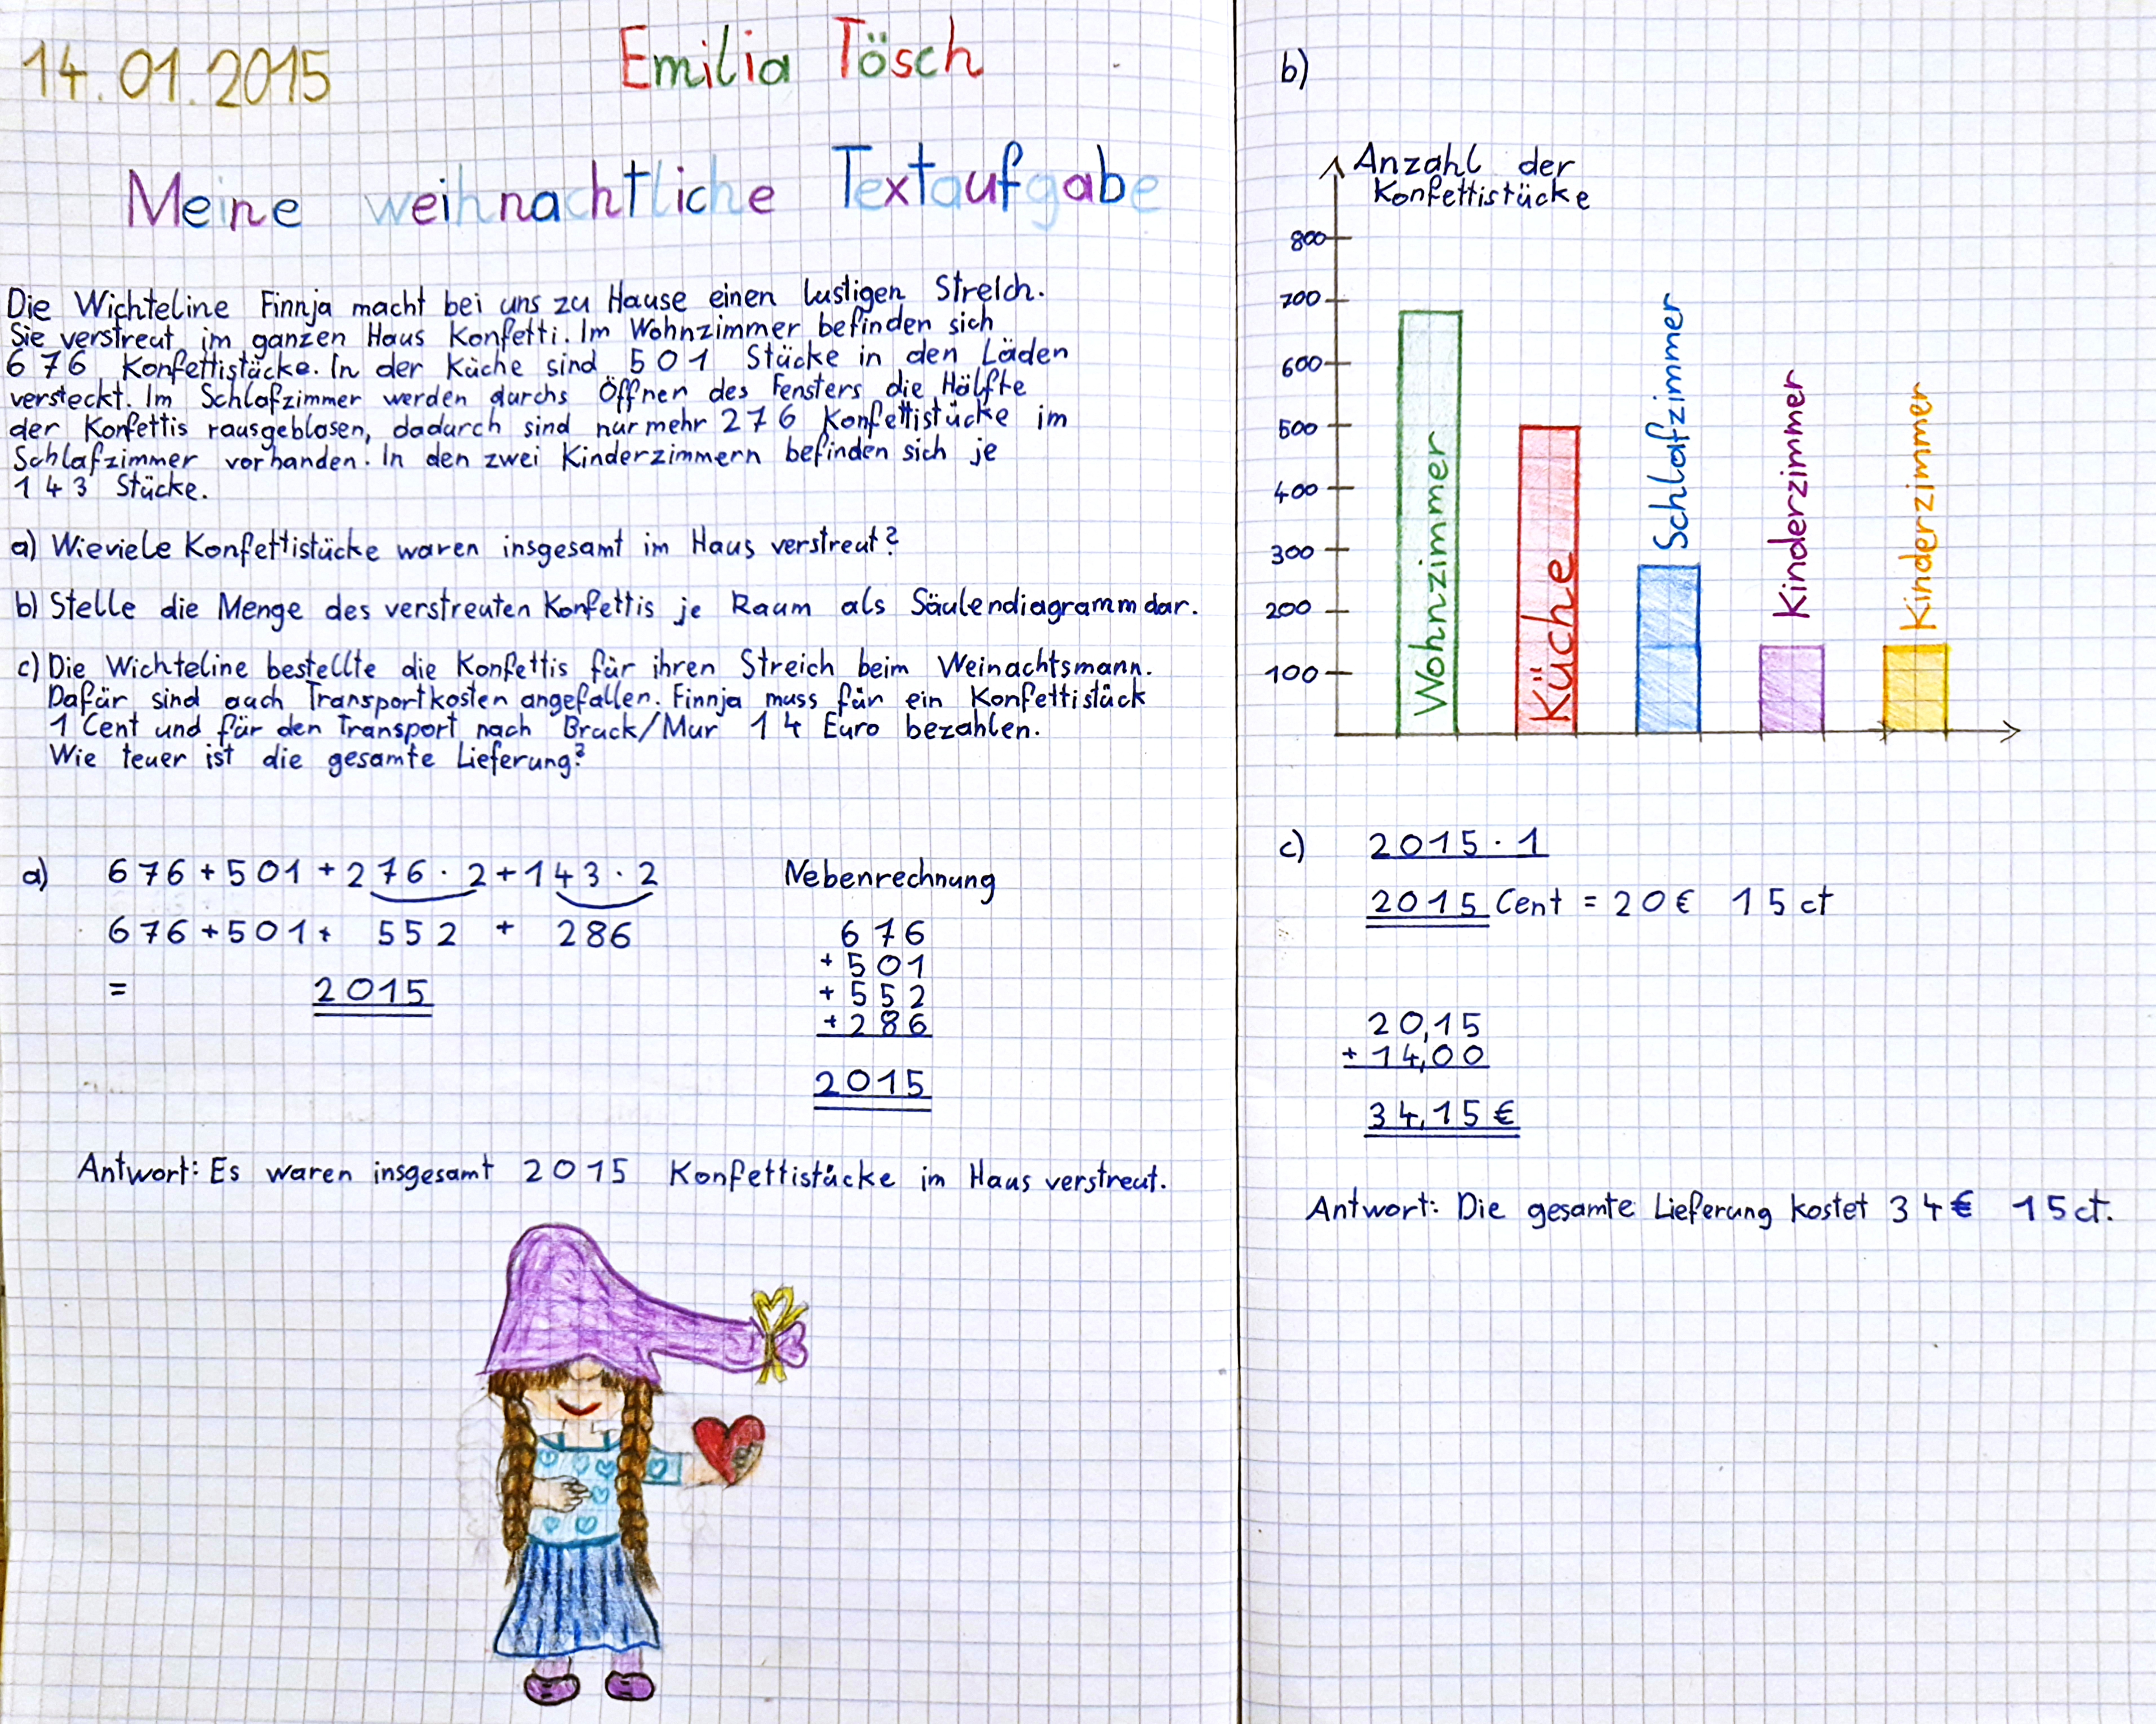 14.01.2015
Emilia Tösch
Meine weihnachtliche Textaufgabe
Die Wichteline Finnja macht bei uns zu Hause einen lustigen Streich.
Sie verstreut im ganzen Haus Konfetti. Im Wohnzimmer befinden sich
676 Konfettistücke. In der Küche sind 501 Stücke in den Läden
versteckt. Im Schlafzimmer werden durchs Öffnen des Fensters die Hälfte
der Konfettis rausgeblasen, dadurch sind nurmehr 276 Konfettistücke im
Schlafzimmer vorhanden. In den zwei Kinderzimmern befinden sich je
143 Stücke.
a) Wieviele Konfettistücke waren insgesamt im Haus verstreut?
b) Stelle die Menge des verstreuten Konfettis je Raum als Säulendiagramm dar.
c) Die Wichteline bestellte die Konfettis für ihren Streich beim Weinachtsmann.
Dafür sind auch Transportkosten angefallen. Finnja muss für ein Konfettistück
1 Cent und für den Transport nach Bruck/Mur 14 Euro bezahlen.
Wie teuer ist die gesamte Lieferung?
a) 676 + 501 + 276 · 2 + 143 · 2
676 + 501 + 552 + 286
= 2015
Nebenrechnung
676
+ 501
+ 552
+ 286
2015
Antwort: Es waren insgesamt 2015 Konfettistücke im Haus verstreut.
b)
Anzahl der
Konfettistücke
800
700
600
500
400
300
200
100
Wohnzimmer
Küche
Schlafzimmer
Kinderzimmer
Kinderzimmer
c) 2015 · 1
2015 Cent = 20€ 15ct
20,15
+ 14,00
34,15€
Antwort: Die gesamte Lieferung kostet 34€ 15ct.